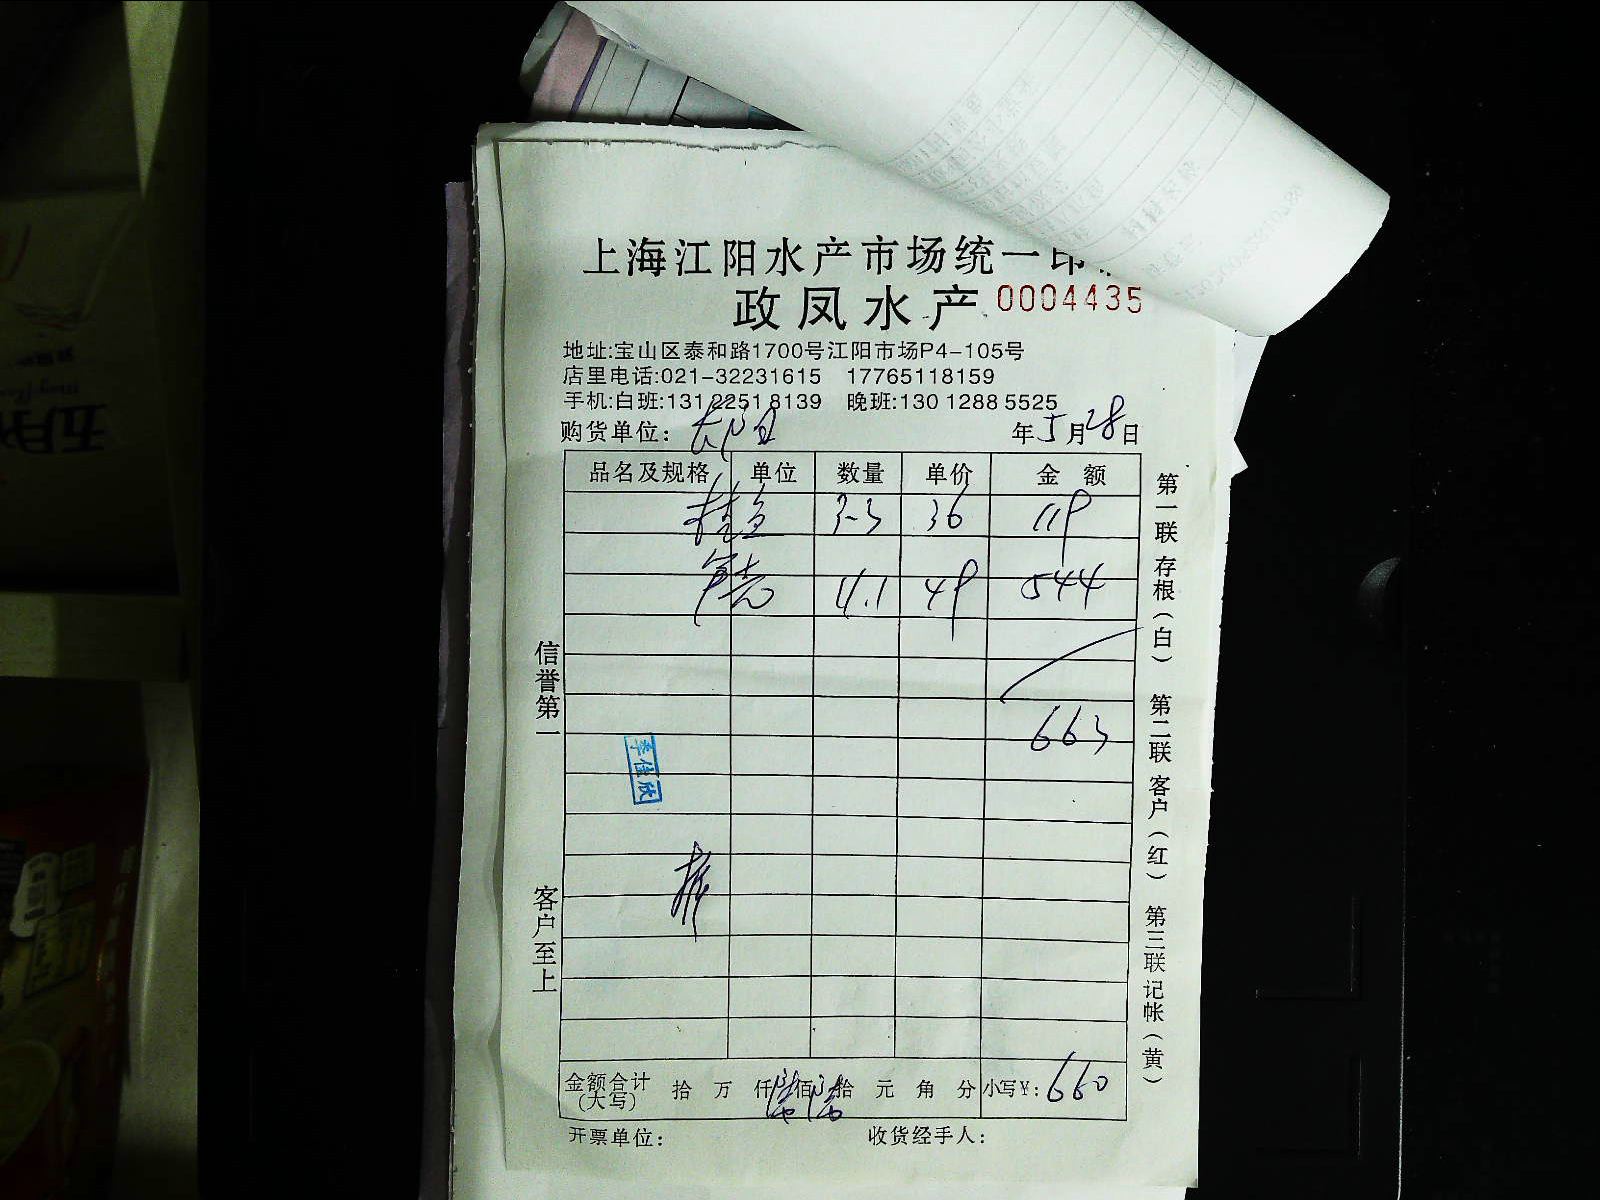 上海江阳水产市场统一印
政凤水产 0004435
地址:宝山区泰和路1700号江阳市场P4-105号
店里电话:021-32231615 17765118159
手机:白班:131 2251 8139 晚班:130 1288 5525
购货单位: 年5月28日
品名及规格 单位 数量 单价 金额
桂鱼 3-3 36 119
11.1 49 544
663
李佳欣
金额合计(大写) 拾 万 仟 陆佰 陆拾 元 角 分 小写¥:660
开票单位: 收货经手人:
信誉第一 客户至上
第一联 存根(白) 第二联 客户(红) 第三联 记帐(黄)